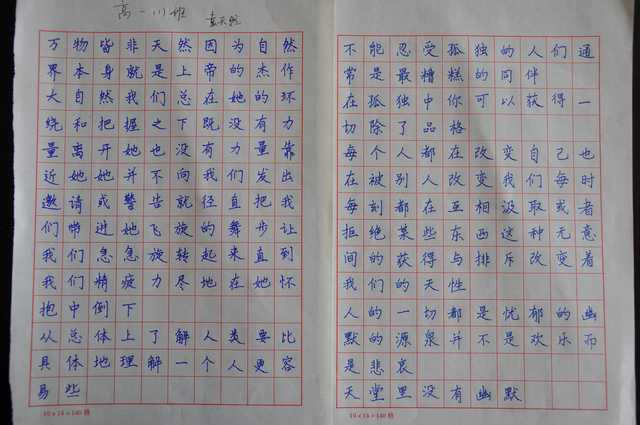 高一川班
万物皆非天然因为自然
界本身就是上帝的杰作
大自然我们总在她的环
绕和把握之下既没有力
量离开她也没有力量靠
近她她并不向我们发出
邀请或警告就径直把我
们带进她飞旋的舞步让
我们急急旋转起来直到
我们精疲力尽地在她怀
抱中倒下
从总体上了解人类要比
具体地理解一个人更容
易些
10×14=140格
不能忍受孤独的人们通
常是最糟糕的同伴
在孤独中你可以获得一
切除了品格
每个人都在改变自己也
在被别人改变我们每时
每刻都在互相汲取或者
拒绝某些东西这种无意
间的获得与排斥改变着
我们的天性
人的一切都是忧郁的幽
默的源泉并不是欢乐而
是悲哀
天堂里没有幽默
10×14=140格